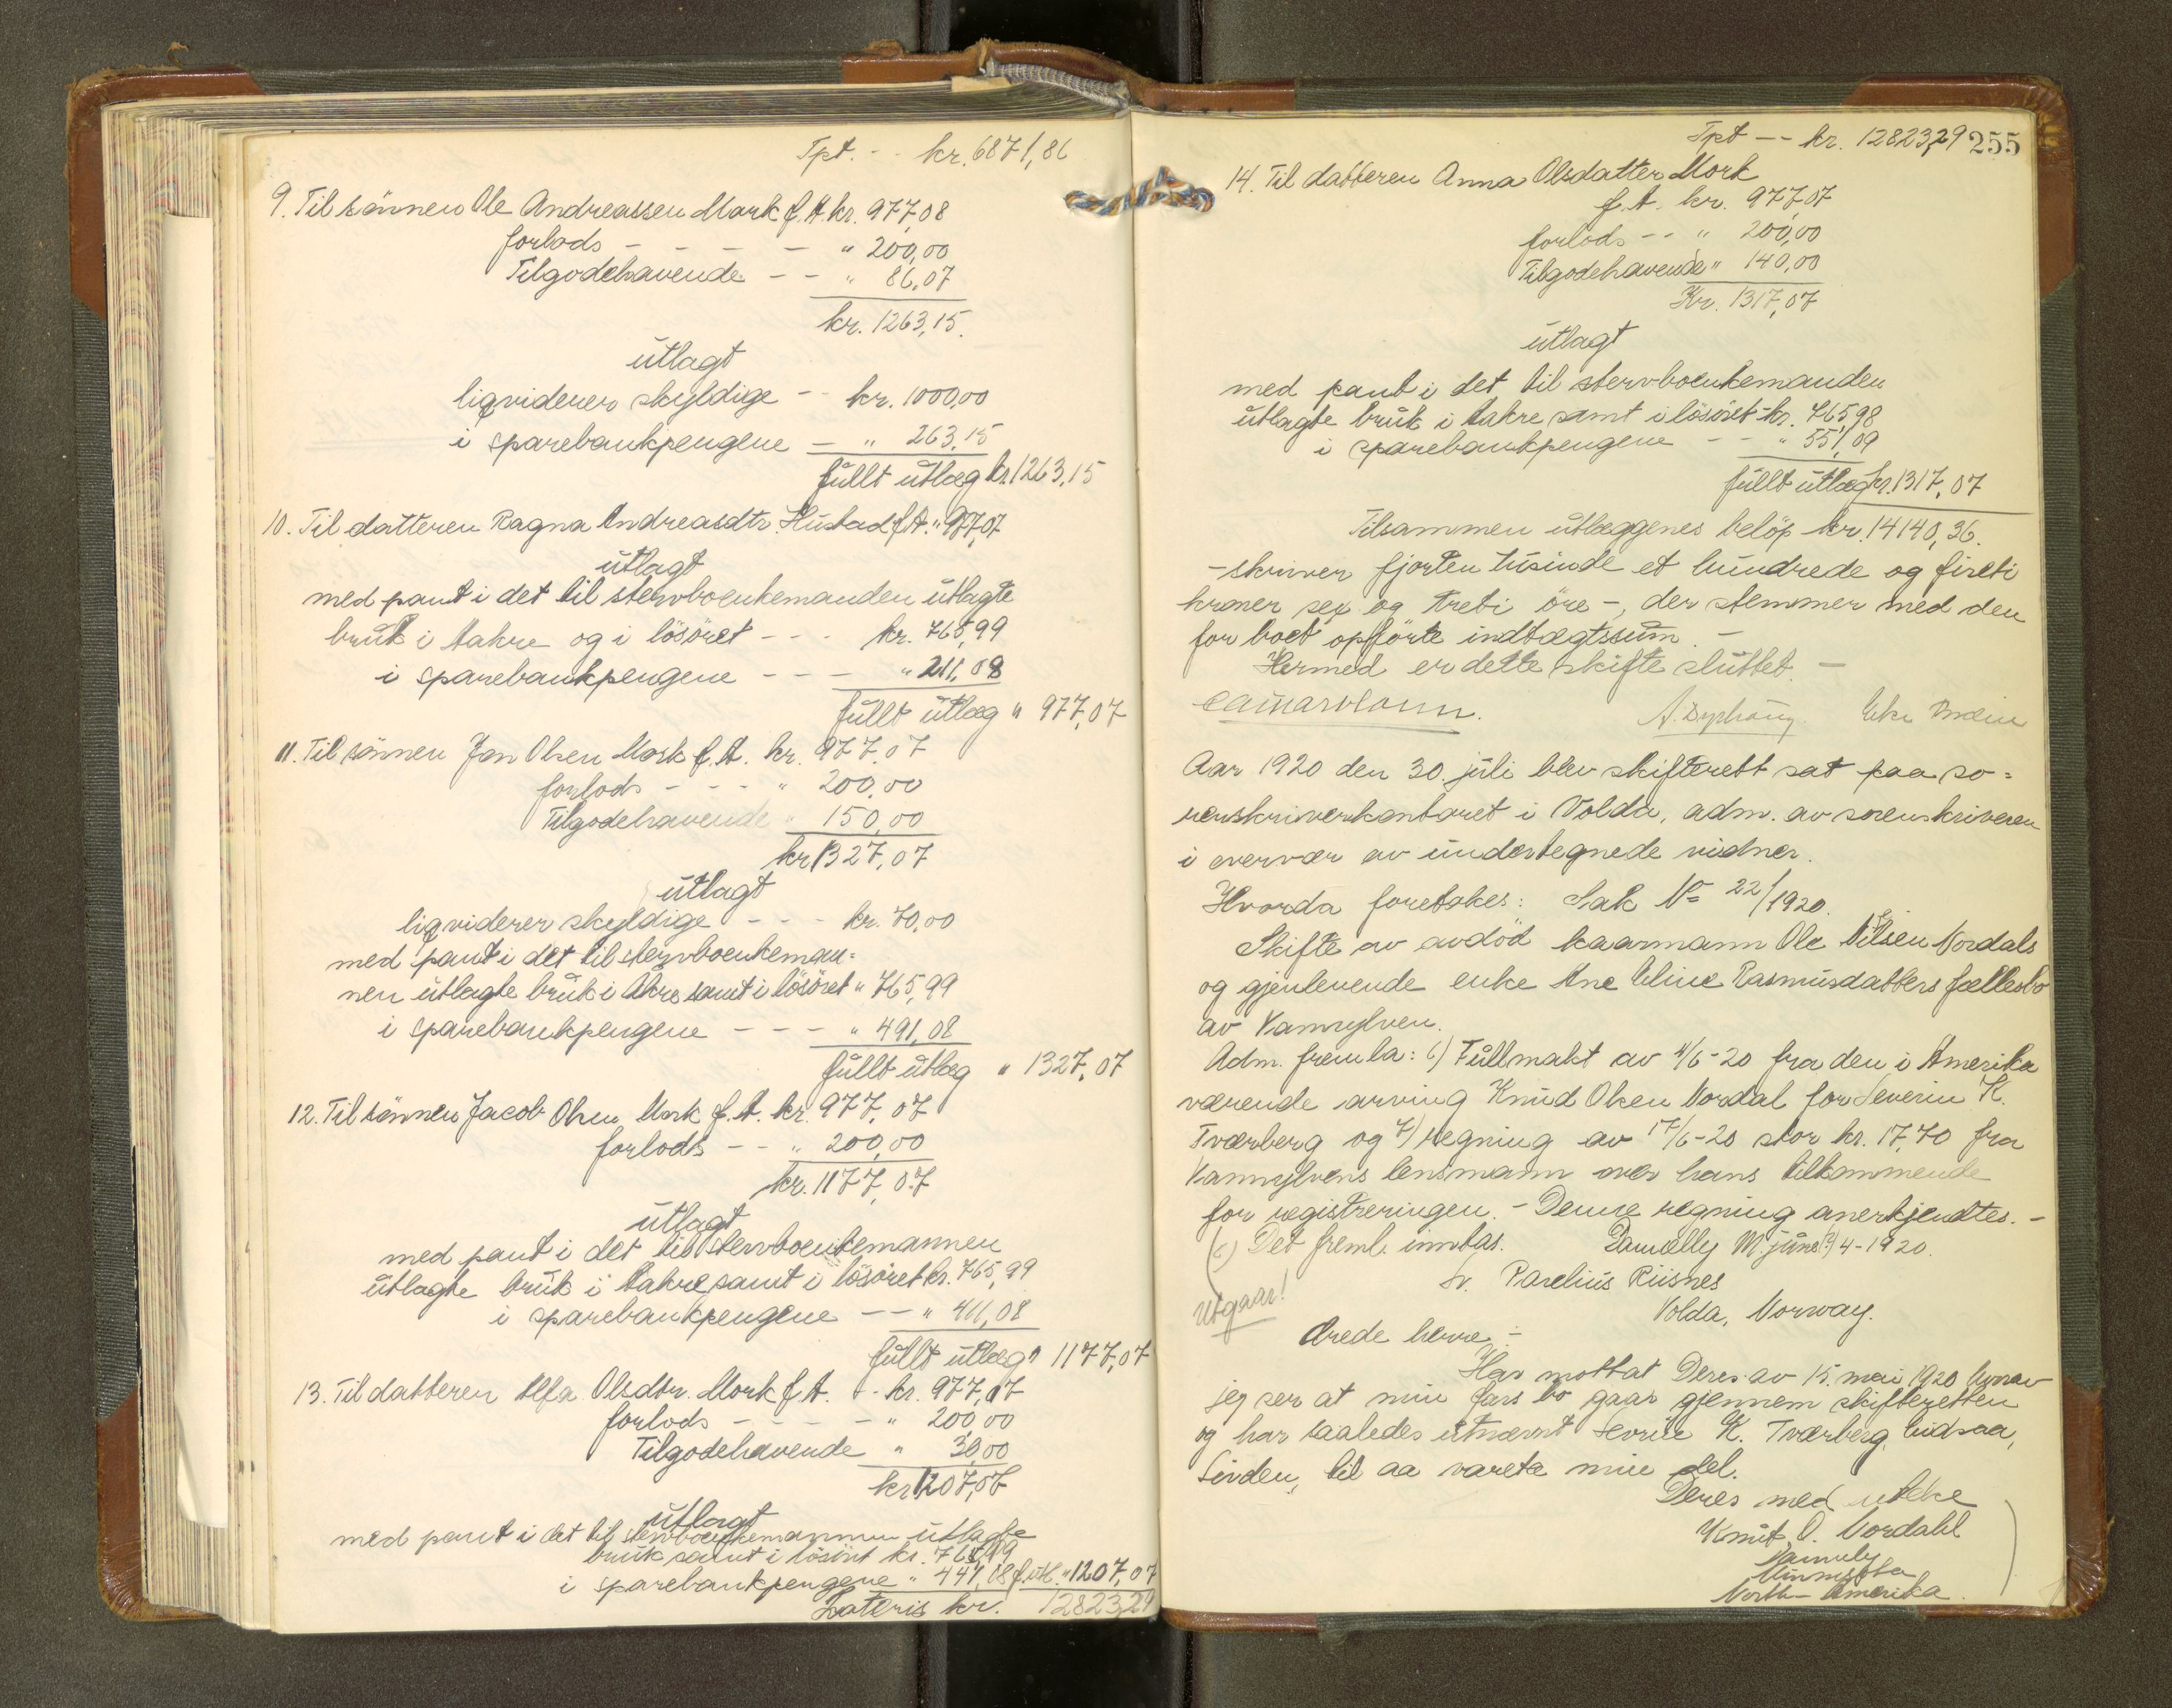 Tpt. -- kr. 6871,86
9. Til sönnen Ole Andreassen Mork f.A. kr. 977,08
forlods - - - - " 200,00
Tilgodehavende - - " 86,07
kr. 1263,15.
utlagt
liqviderer skyldige -- kr. 1000,00
i sparebankpengene - " 263,15
fullt utlæg kr. 1263,15
10. Til datteren Ragna Andreasdtr. Hustad f.A. " 977,07
utlagt
med pant i det til stervboenkemanden utlagte
bruk i Aakre og i lösöret - - - kr. 765,99
i sparebankpengene - - - " 211,08
fullt utlæg " 977,07
11. Til sönnen Jon Olsen Mork f.A. kr. 977,07
forlods - - - " 200,00
Tilgodehavende " 150,00
kr 1327,07
utlagt
liqviderer skyldige - - - kr. 70,00
med pant i det til stervboenkeman-
nen utlagte bruk i Akre samt i lösöret " 765,99
i sparebankpengene - - - " 491,08
fullt utlæg " 1327,07
12. Til sönnen Jacob Olsen Mork f.A. kr. 977,07
forlods - - " 200,00
kr. 1177,07
utlagt
med pant i det til stervboenkemannen
utlagte bruk i Aakre samt i lösöret kr. 765,99
i sparebankpengene - - " 411,08
fullt utlæg " 1177,07
13. Til datteren Alfa Olsdtr. Mork f.A. - kr. 977,07
forlods - - - - " 200,00
Tilgodehavende " 30,00
kr 1207,07
utlagt
med pant i det til stervboenkemannen utlagte
bruk samt i lösöret kr. 765,99
i sparebankpengene " 441,08 f. utl. " 1207,07
Lateris kr. 12823,29
Tpt -- kr. 12823,29 255
14. Til datteren Anna Olsdatter Mork
f.A. kr. 977,07
forlods -- " 200,00
Tilgodehavende " 140,00
Kr. 1317,07
utlagt
med pant i det til stervboenkemanden
utlagte bruk i Aakre samt i lösöret - kr. 765,98
i sparebankpengene - - " 551,09
fullt utlæg kr. 1317,07
Tilsammen utlæggenes belöp kr. 14140,36.
- skriver fjorten tusinde et hundrede og firti
kroner sex og treti öre -, der stemmer med den
for boet opförte indtægtssum. -
Hermed er dette skifte sluttet. -
A. Dyphaug.
Aar 1920 den 30. juli blev skifterett sat paa so=
renskriverkontoret i Volda, adm. av sorenskriveren
i overvær av undertegnede vidner.
Hvorda foretokes: Sak No 22/1920.
Skifte av avdöd kaarmann Ole Nilsen Nordals
og gjenlevende enke Ane Eline Rasmusdatters fællesbo
av Vannylven.
Adm. fremla: 6) Fullmakt av 4/6-20 fra den i Amerika
værende arving Knud Olsen Nordal for Severin K.
Tværberg og 7) regning av 17/6-20 stor kr. 17,70 fra
Vannylvens lensmann over hans tilkommende
for registreringen. - Denne regning anerkjendtes. -
6) Det freml. inntas. M. june(?) 4-1920.
Sr. Parelius Riisnes
Utgaar!
Volda, Norway.
Ærede herre, -
Har mottat Deres av 15. mai 1920 hvorav
jeg ser at min fars bo gaar gjennem skifteretten
og har saaledes utnævnt Severin K. Tværberg,
til aa vareta min del.
Deres med
Knut O. Nordahl
Minnesota
North-Amerika.